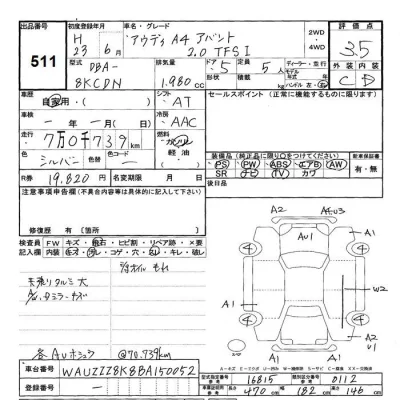 出品番号
511
初度登録年月
H 23年 6月
車名・グレード
アウディ A4 アバント
2.0 TFSI
2WD
4WD
評価点
3.5
型式
DBA-
8KCDN
排気量
1.980cc
ドア形状
5
定員
5人
ディーラー・並行
ハンドル 左・右
外装 内装
C D
車歴
自家用・
シフト
AT
セールスポイント(正常に機能するものに限る)
車検
一年 一月 一日
冷房
AAC
走行
7万0千739km
燃料
ガソリン
軽油
色
シルバー
色替
色コード
装備品(純正品に限り○をつけてください)
PS PW ABS エアB AW
SR ナビ TV カワ
新車保証書
有・無
R券 19,820円
名変期限 月 日
後日品
注意事項申告欄(不具合内容等は具体的に記入して下さい)
修復歴 有〔箇所 〕
検査員記入欄
FW キズ・飛石・ヒビ割・リペア跡・×要
内装
コゲ・穴・
キレ・破レ
天張りタルミ 大
@70.739km
車台番号
WAUZZZ8K8BA150052
登録番号
一
A4.U3
A1
AU1
A1
4
4
A1
W2
A1
4
4
A2
A2
U1
スペア
型式指定番号
16815
類別区分番号
0112
車両諸元
長さ 470cm
幅 182cm
高さ 146cm